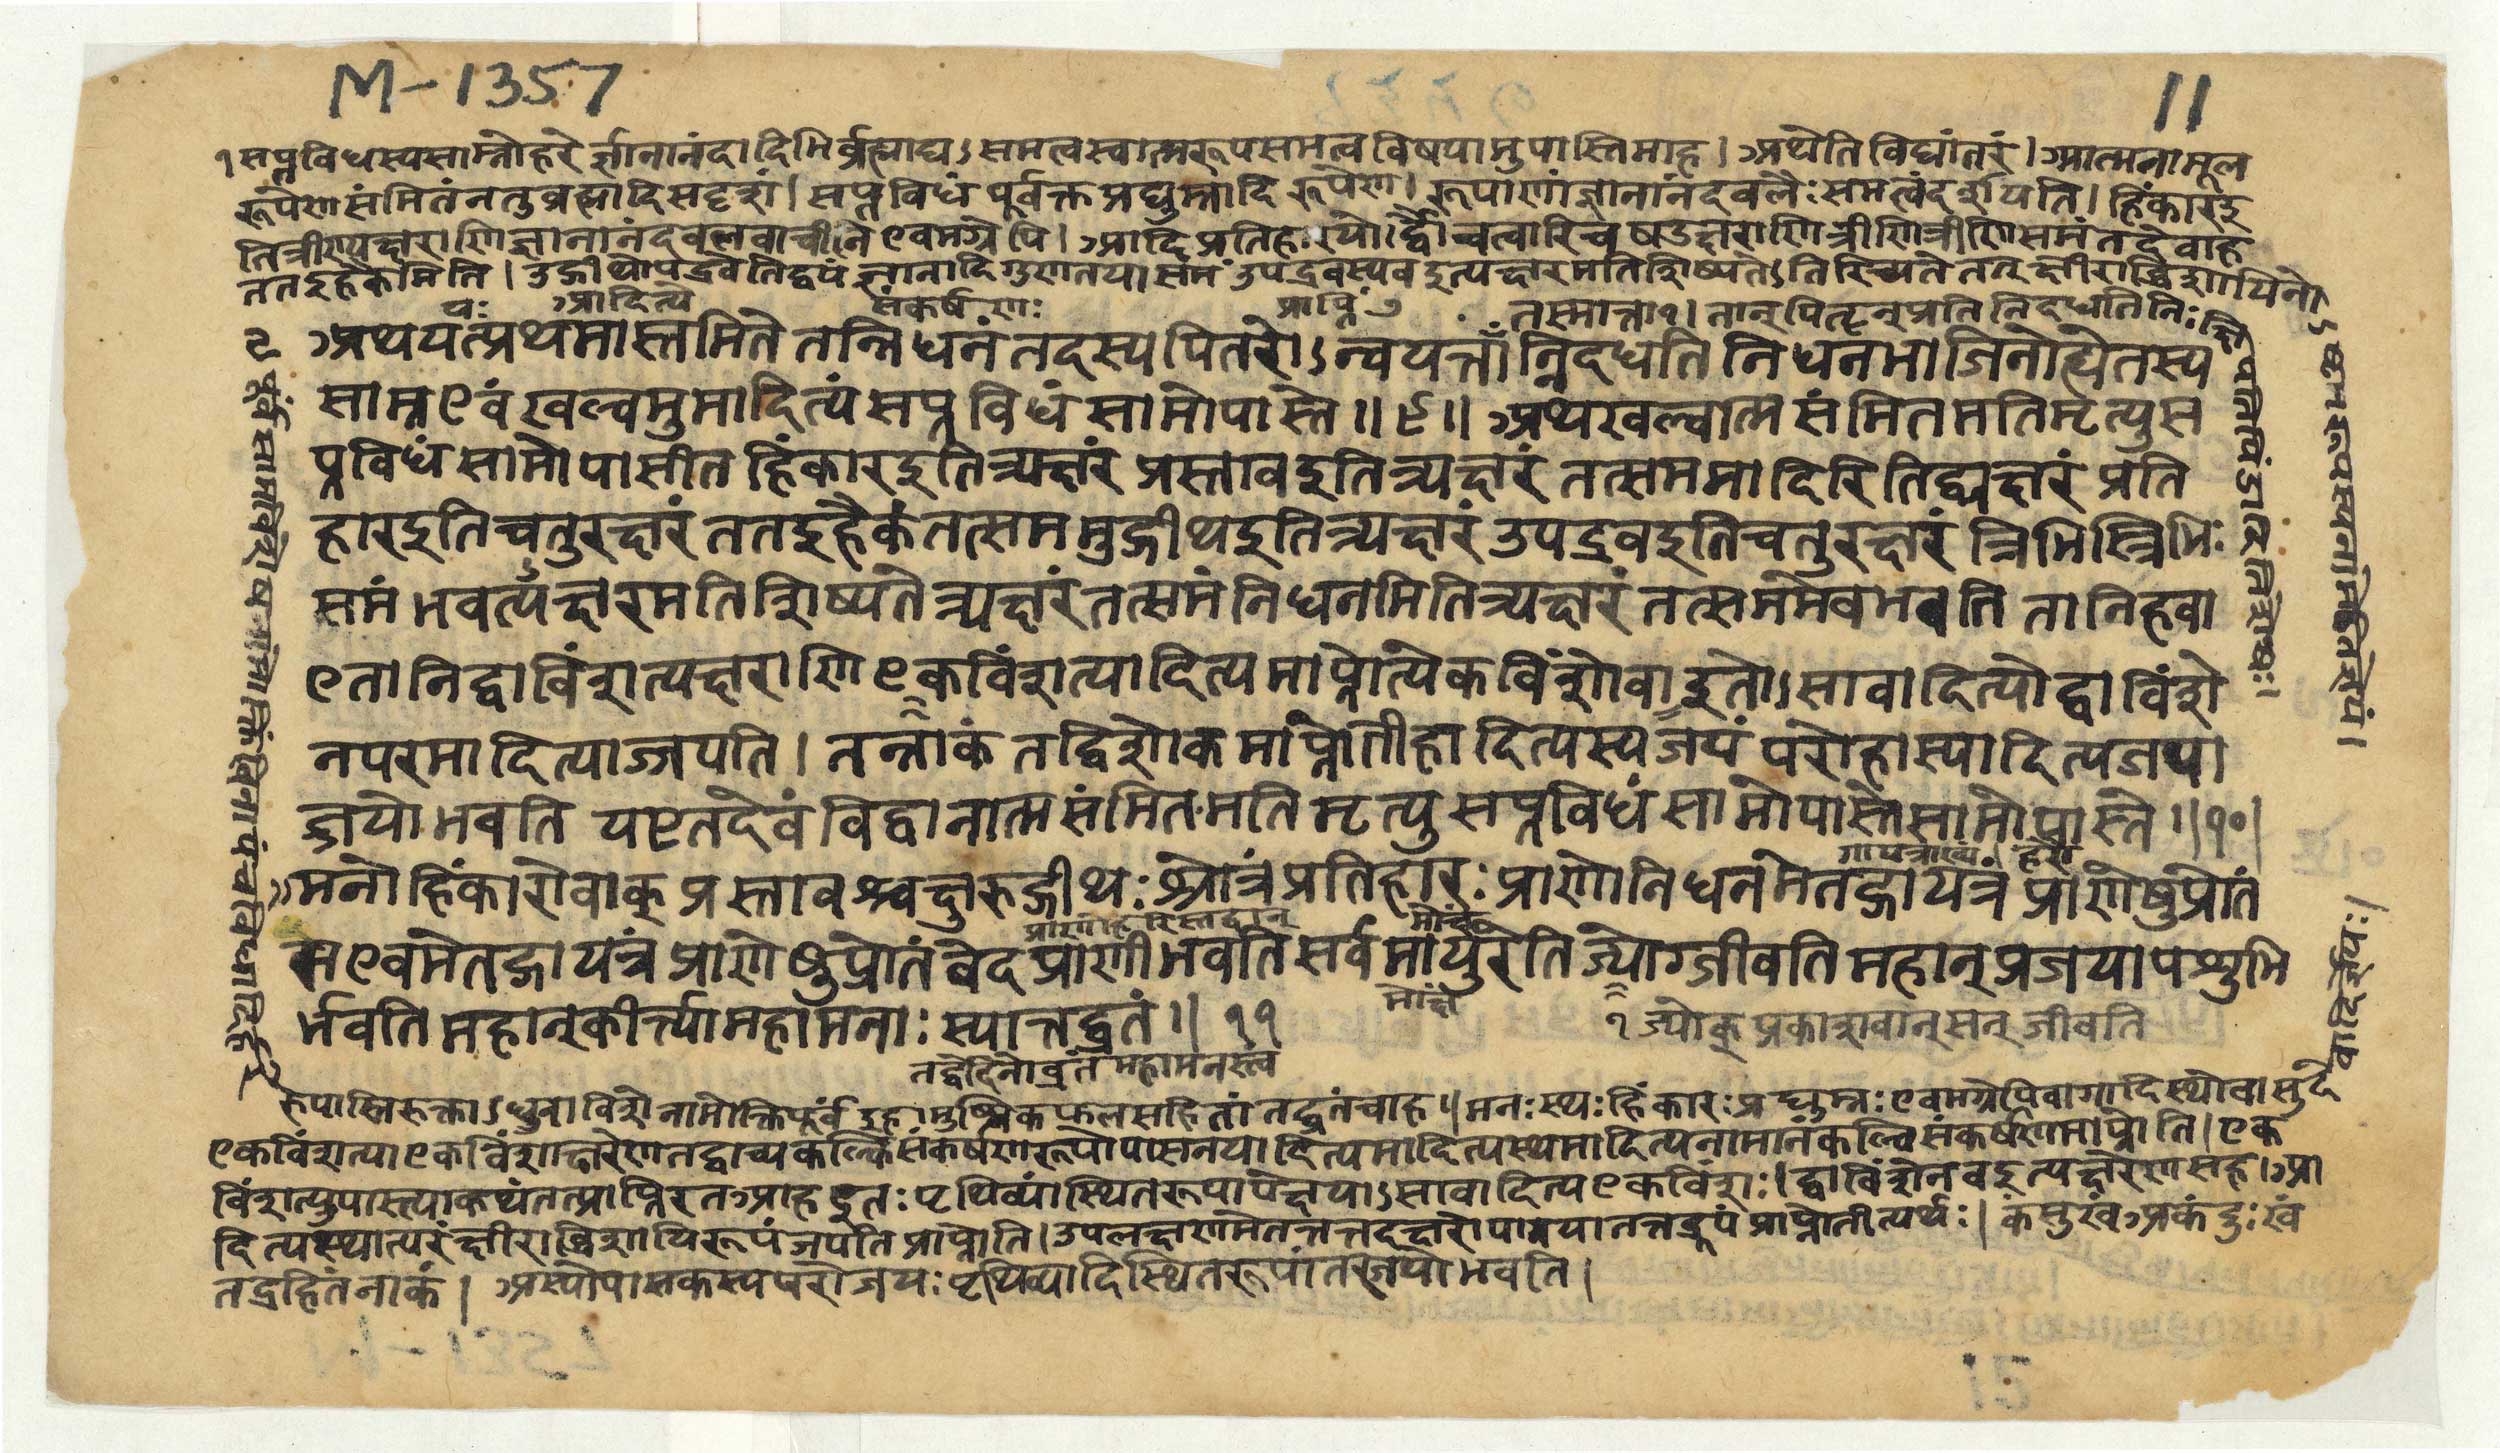 M-1357
11
१ सप्तविधस्यसाम्नोहरेर्ज्ञानानंदादिभिर्ब्रह्माद्यऽसमत्वस्वात्मरूपसमत्वविषयामुपास्तिमाह। अथेतिविद्यांतरं। आत्मनामूल
रूपेणसंमितंनतुब्रह्मादिसदृशं। सप्तविधं पूर्वक्तप्रद्युम्नादिरूपेण। रूपाणांज्ञानानंदबलैःसमत्वंदर्शयति। हिंकारइ
तित्रीण्यक्षराणिज्ञानानंदबलवाचीनि एवमग्रेपि। आदिप्रतिहारयोर्द्वौचत्वारिच षडक्षराणित्रीणित्रीणिसमंतदेवाह
ततइहैकमिति। उद्गीथोपद्रवेतिद्वयं ज्ञानादिगुणतयासमं उपद्रवस्यवइत्यक्षरमतिशिष्यतेऽतिरिच्यते तत् क्षीराब्धिशायिनो
यः आदित्ये संकर्षणः प्राप्तिं तस्मात्ता१। तान्पितॄन्प्रति निदधतिनिःक्षि
अथयत्प्रथमास्तमिते तन्निधनं तदस्यपितरोऽन्वयत्तांन्निदधति निधनभाजिनोह्येतस्य
साम्नएवंखल्वमुमादित्यं सप्तविधं सामोपास्ते॥९॥ अथखल्वात्मसंमितमतिमृत्युस
प्तविधं सामोपासीत हिंकारइतित्र्यक्षरं प्रस्तावइतित्र्यक्षरं तत्सममादिरितिद्व्यक्षरं प्रति
हारइतिचतुरक्षरं ततइहैकंतत्सममुद्गीथइतित्र्यक्षरं उपद्रवइतिचतुरक्षरं त्रिभिस्त्रिभिः
समंभवत्यक्षरमतिशिष्यतेत्र्यक्षरंतत्समंनिधनमितित्र्यक्षरं तत्सममेवभवति तानिहवा
एतानिद्वाविंशत्यक्षराणि एकविंशत्यादित्यमाप्नोत्येकविंशोवाइतोऽसावादित्योद्वाविंशे
नपरमादित्याज्जयति। तन्नाकं तद्विशोकमाप्नोतीहादित्यस्यजयं परोहास्यादित्यजया
ज्जयोभवति यएतदेवंविद्वानात्मसंमितमतिमृत्यु सप्तविधं सामोपास्तेसामोपास्ते॥१०॥
गायत्राख्यं हरौ
मनोहिंकारोवाक्प्रस्तावश्चक्षुरुद्गीथः श्रोत्रंप्रतिहारः प्राणोनिधनमेतद्गायत्रं प्राणेषुप्रोतं
सएवमेतद्गायत्रं प्राणेषुप्रोतंवेद प्राणीभवति सर्वमायुरेति ज्योग्जीवति महान्प्रजयापशुभि
र्भवति महान्कीर्त्त्यामहामनाः स्यात्तद्व्रतं॥ ११
मोक्षे
१ ज्योक् प्रकाशवान्सन् जीवति
तद्वेदिनोव्रतं महामनस्त्वं
रुपास्तिरुक्ताऽधुनाविशेनामोक्तिपूर्वं इहामुष्मिकफलसहितांतद्व्रतंचाह॥ मनःस्थःहिंकारःप्रद्युम्नः एवमग्रेपिवागादिस्थोवासुदे
एकविंशत्या एकविंशाक्षरेणतद्वाच्यकल्किसंकर्षणरूपोपासनयादित्यमादित्यस्थमादित्यनामानंकल्किसंकर्षणमाप्नोति। एक
विंशत्युपास्त्याकथंतत्प्राप्तिरतआह इतः पृथिव्यांस्थितरूपापेक्षयाऽसावादित्यएकविंशः। द्वाविंशेनवइत्यक्षरेणसह। आ
दित्यस्थात्परंक्षीराब्धिशायिरूपंजयतिप्राप्नोति। उपलक्षणमेतत्तत्तदक्षरोपासयातत्तद्रूपंप्राप्नोतीत्यर्थः। कंसुखंअकंदुःखं
तद्रहितंनाकं। अस्योपासकस्यपरोजयः पृथिव्यादिस्थितरूपांतरजयोभवति।
२ पूर्वंसामविशेषनामोक्तिंविनापंचविधादिह
पंतिपिंडानितिशेषः।
ऽष्टमरूपस्यनामेतिज्ञेयं।